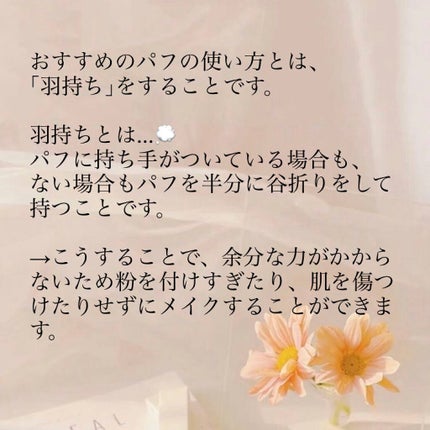 おすすめのパフの使い方とは、
「羽持ち」をすることです。
羽持ちとは...💭
パフに持ち手がついている場合も、
ない場合もパフを半分に谷折りをして
持つことです。
→こうすることで、余分な力がかから
ないため粉を付けすぎたり、肌を傷つ
けたりせずにメイクすることができま
す。